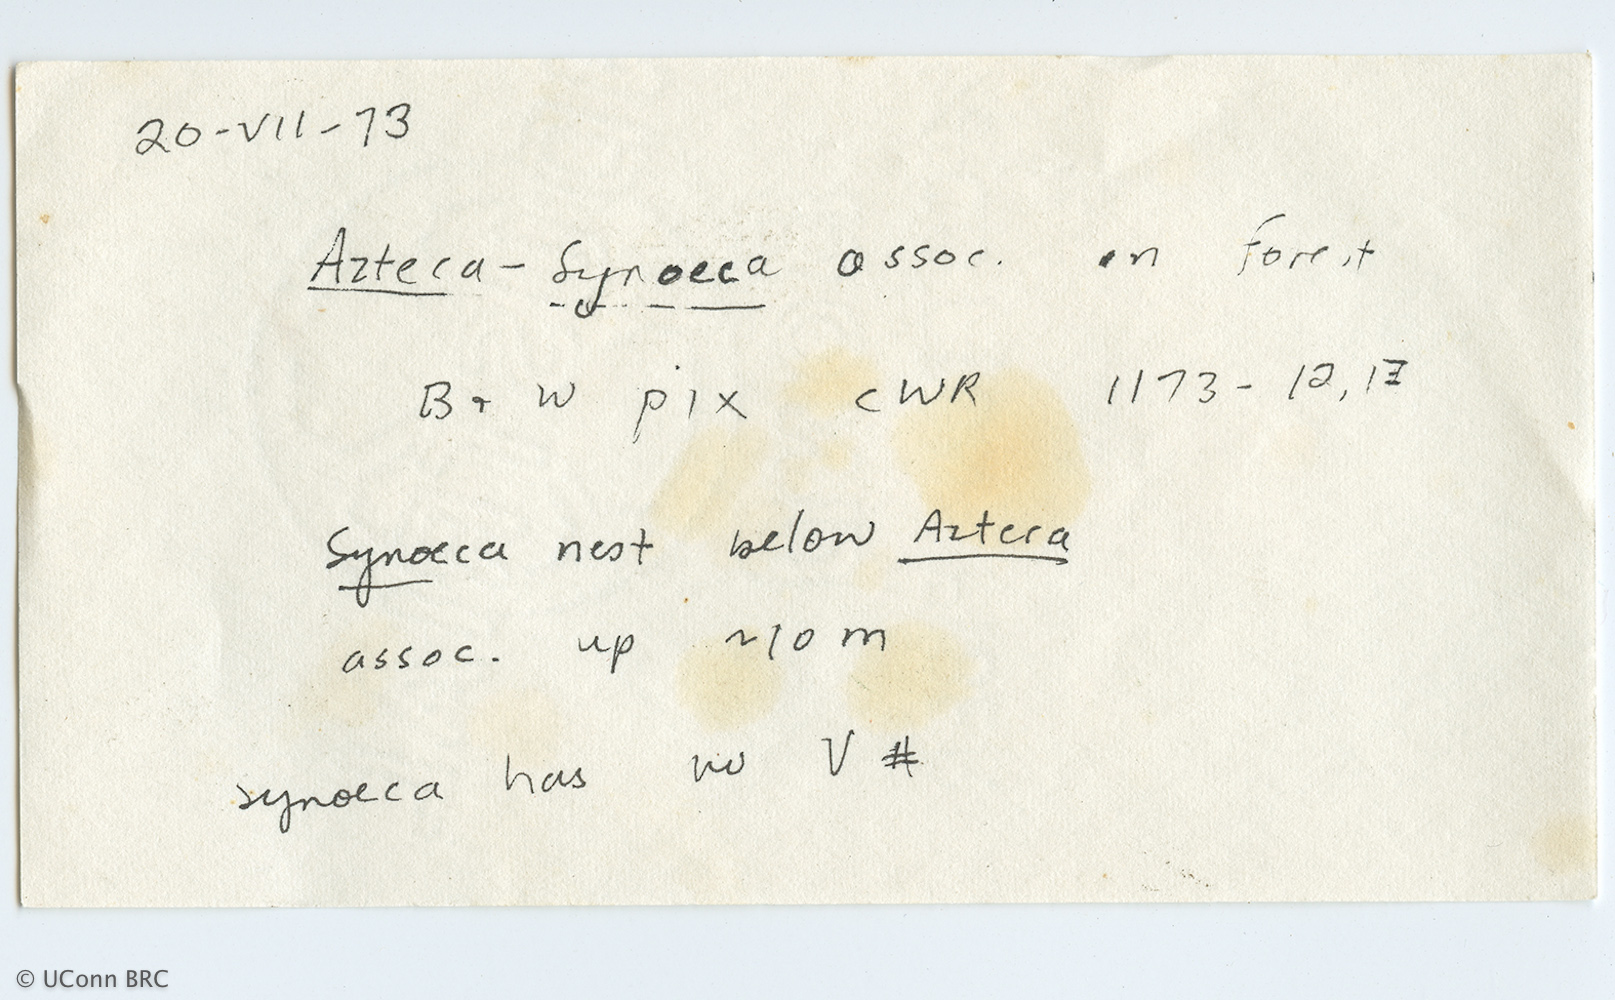 20-VII-73
Azteca-Synoeca assoc. in forest
B + W pix CWR 1173-12,13
Synoeca nest below Azteca
assoc. up ~10 m
synoeca has no V #
© UConn BRC